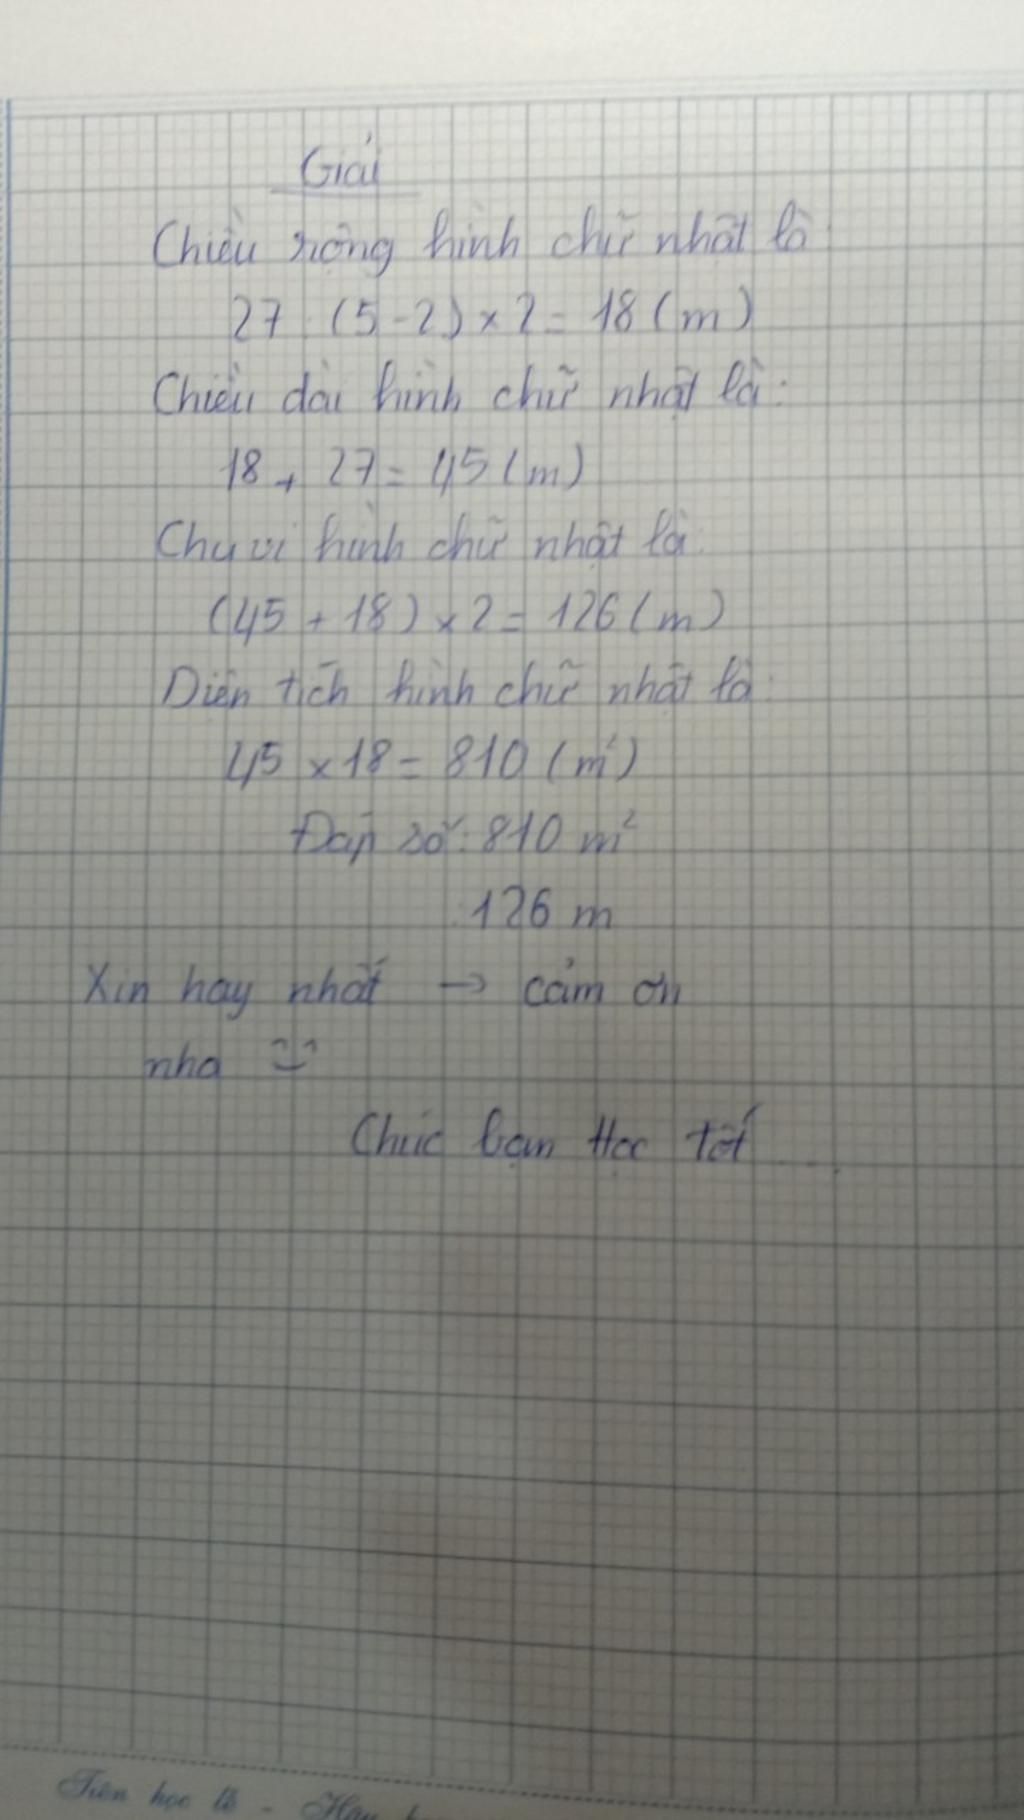 Giải
Chiều rộng hình chữ nhật là:
27 : (5 - 2) x 2 = 18 (m)
Chiều dài hình chữ nhật là:
18 + 27 = 45 (m)
Chu vi hình chữ nhật là:
(45 + 18) x 2 = 126 (m)
Diện tích hình chữ nhật là:
45 x 18 = 810 (m²)
Đáp số: 810 m²
: 126 m
Xin hay nhất → cảm ơn
nha
Chúc bạn Học Tốt
Tiên học lễ - Hậu